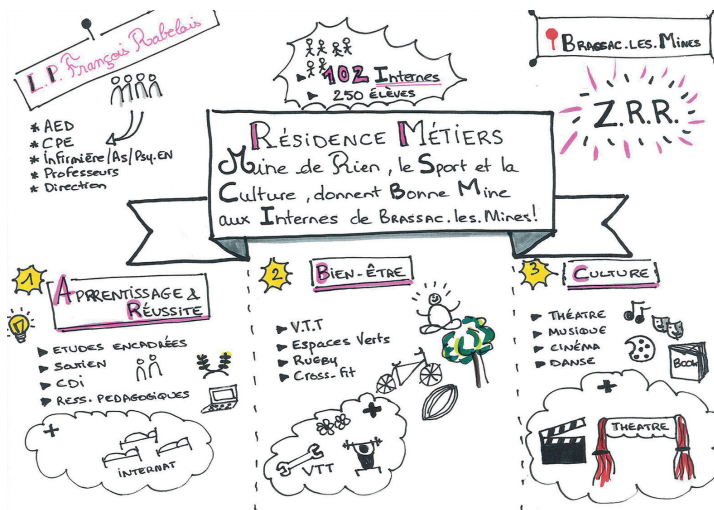 L.P. François Rabelais
* AED
* CPE
* Infirmière/As/Psy.EN
* Professeurs
* Direction
102 Internes
250 ÉLÈVES
BRASSAC.LES.MINES
Z.R.R.
RÉSIDENCE MÉTIERS
Mine de Rien, le Sport et la
Culture, donnent Bonne Mine
aux Internes de BRASSAC.les.Mines!
1
APPRENTISSAGE &
RÉUSSITE
ETUDES ENCADRÉES
Soutien
CDi
RESS. PEDAGOGIQUES
+
INTERNAT
2
BIEN-ÊTRE
V.T.T
Espaces Verts
Rugby
Cross-fit
+
VTT
3
CULTURE
THÉATRE
MUSIQUE
CINÉMA
DANSE
BOOK
+
THEATRE